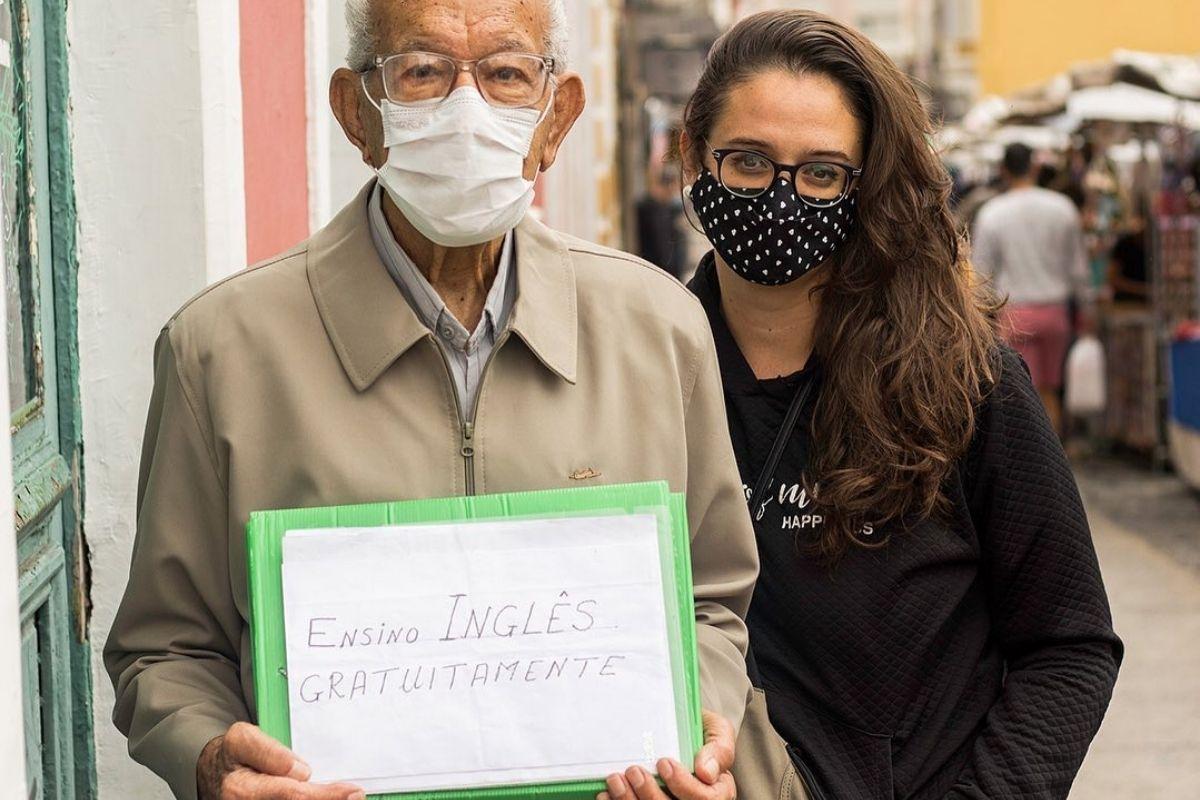 Ensino INGLÊS.
GRATUITAMENTE